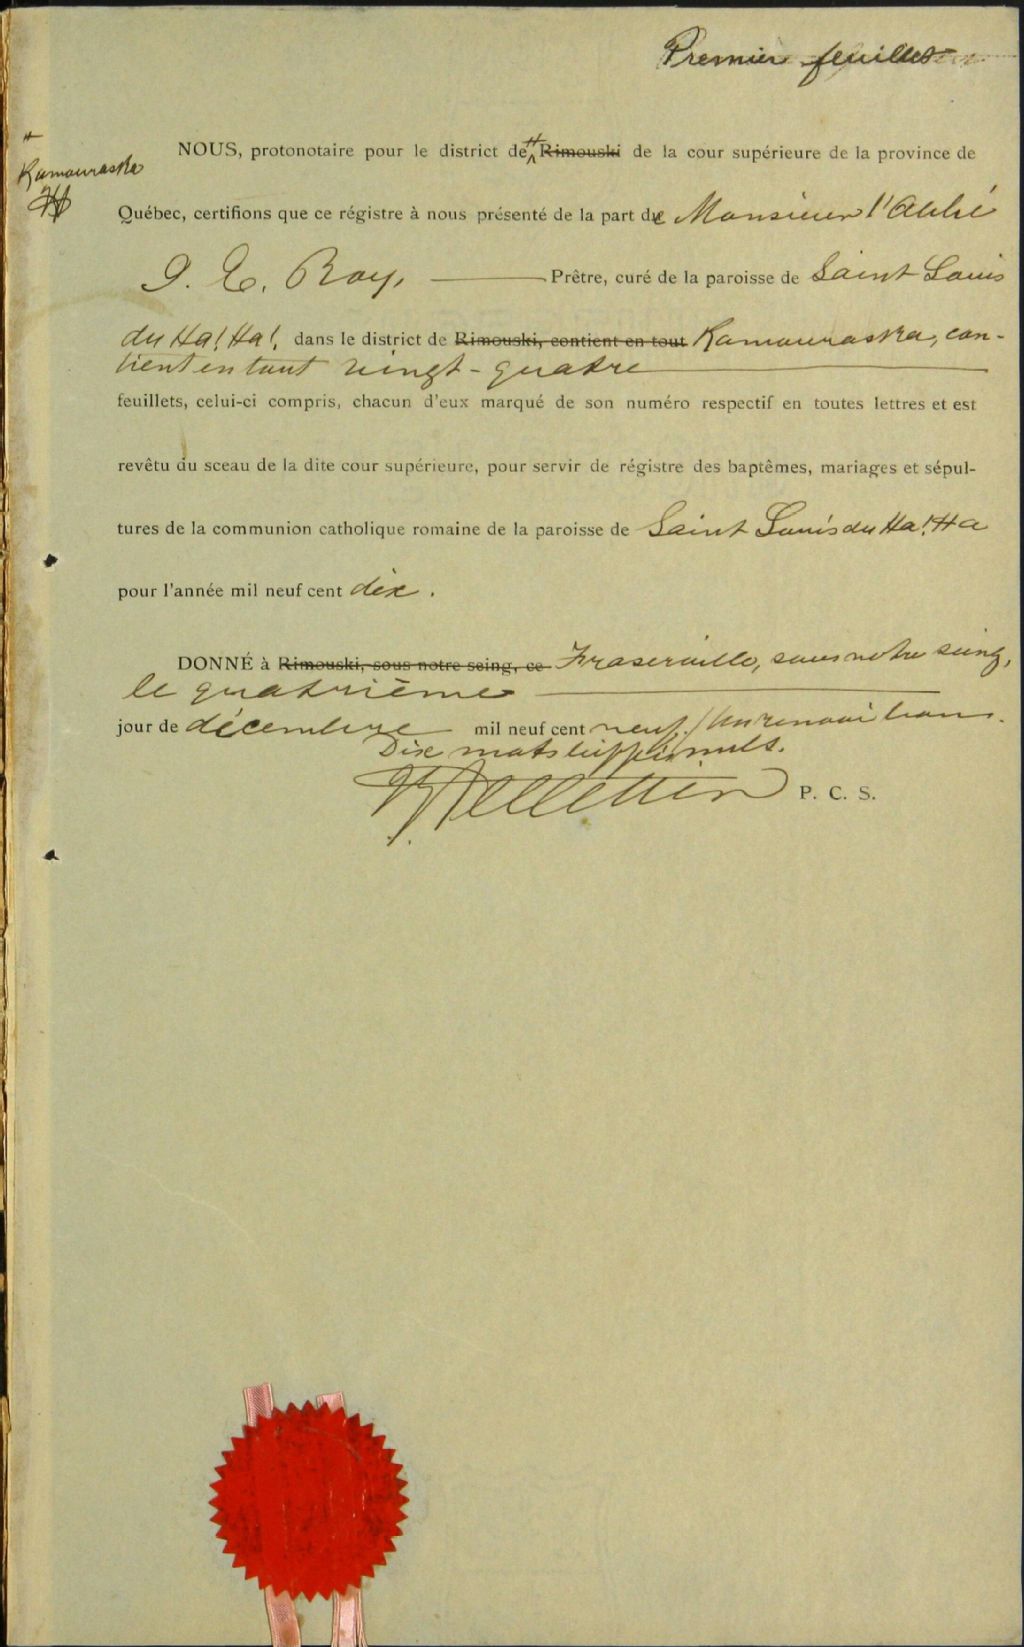 Premier feuillet
Kamouraska
NOUS, protonotaire pour le district de Rimouski de la cour supérieure de la province de
Québec, certifions que ce régistre à nous présenté de la part de Monsieur l'Abbé
Roy, Prêtre, curé de la paroisse de Saint Louis
du Ha! Ha!, dans le district de Rimouski, contient en tout Kamouraska, con-
tient en tout vingt-quatre
feuillets, celui-ci compris, chacun d'eux marqué de son numéro respectif en toutes lettres et est
revêtu du sceau de la dite cour supérieure, pour servir de régistre des baptêmes, mariages et sépul-
tures de la communion catholique romaine de la paroisse de Saint Louis du Ha! Ha
pour l'année mil neuf cent dix.
DONNÉ à Rimouski, sous notre seing, ce Fraserville, sous notre seing,
le quatrième
jour de décembre mil neuf cent neuf. / Un renvoi bon.
Dix mots biffés nuls.
Pelletier P. C. S.